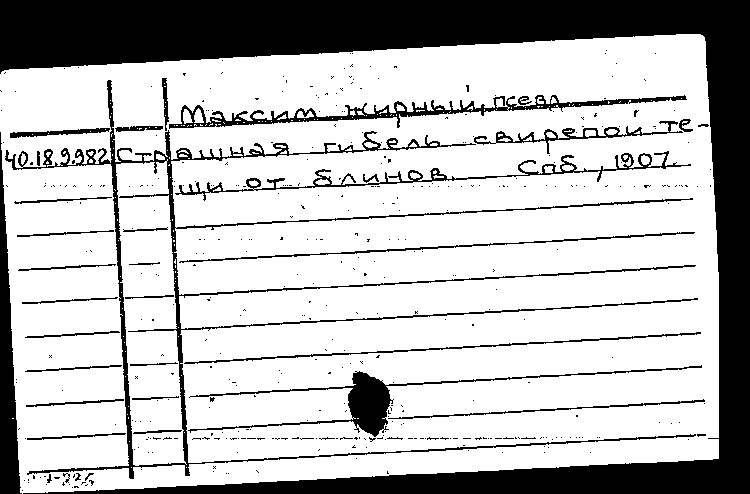 Максим жирный, псевд
40.18.9.982 Страшная гибель свирепой те-
щи от блинов. Спб., 1907.